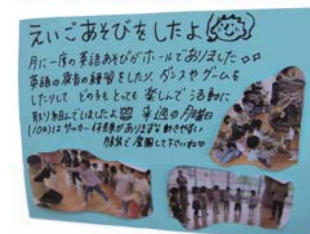 えいごあそびをしたよ
月に一度の英語あそびがホールでありました
英語の発音の練習をしたり、ダンスやゲームを
したりして どの子もとっても 楽しんで 活動に
取り組んでいましたよ 来週の月曜日
(10日)はサッカー体験があります 動きやすい
服装で 登園して下さいね